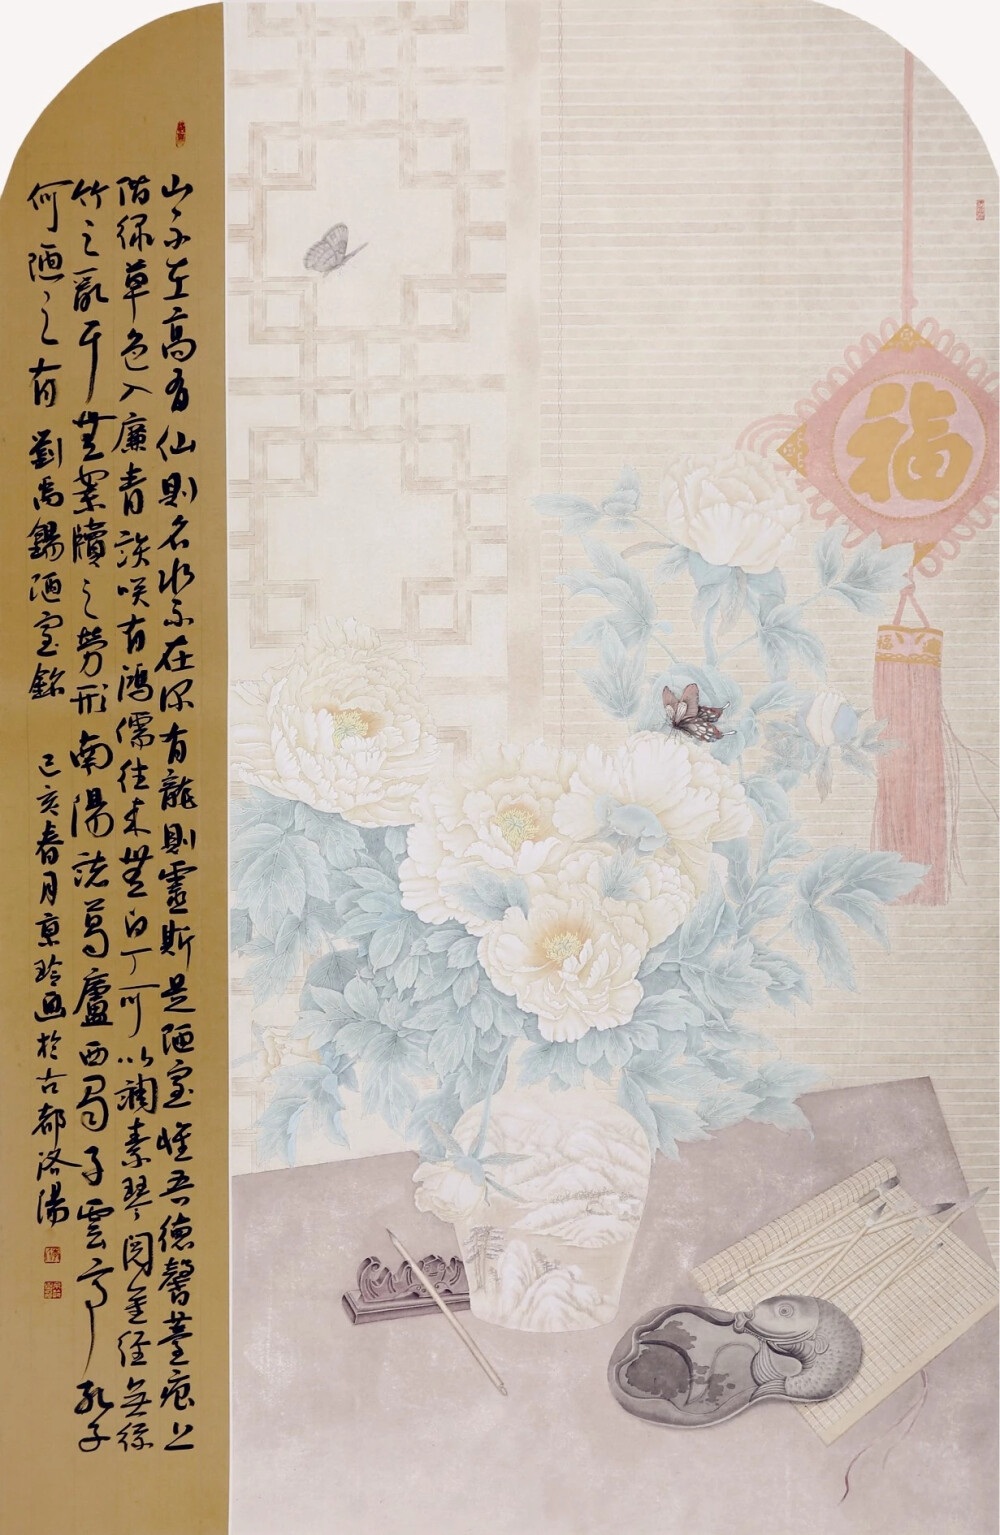 山不在高有仙則名水不在深有龍則靈斯是陋室惟吾德馨薹痕上
階綠草色入廉青談咲有鴻儒往來無白丁可以調素琴閱金經無絲
竹之亂耳無案牘之勞形南陽諸葛廬西蜀子雲亭孔子
何陋之有 劉禹錫陋室銘 己亥春月京玲画於古都洛陽
福
福